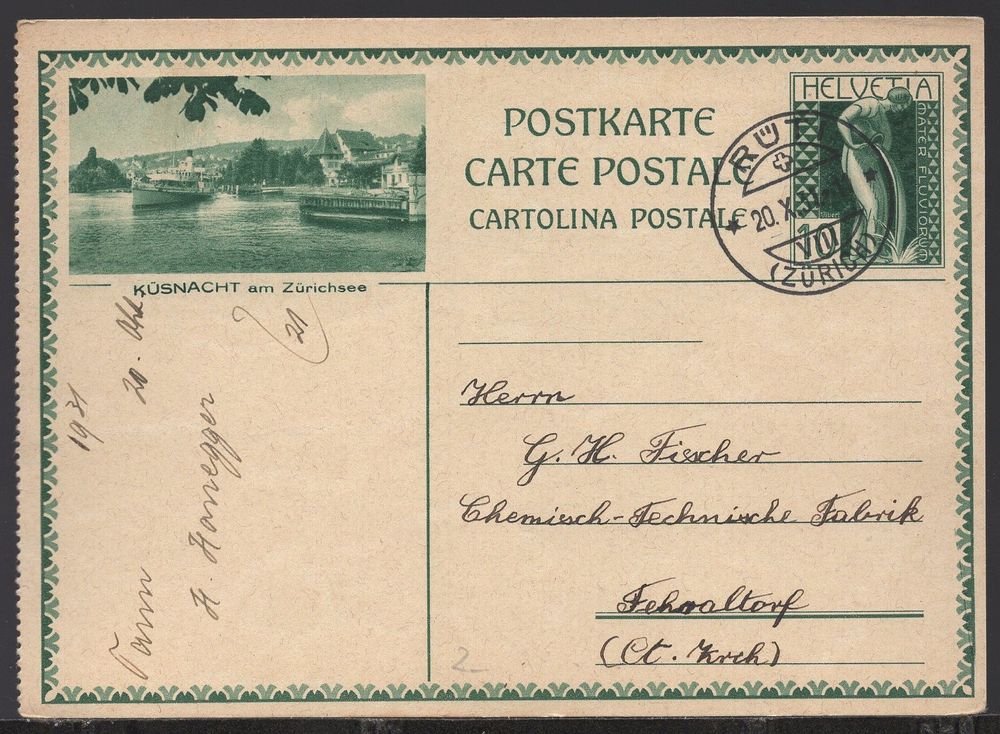 POSTKARTE
CARTE POSTALE
CARTOLINA POSTALE
HELVETIA
MATER FLUVIORUM
RÜTI
20.X.
VIII
(ZÜRICH)
KÜSNACHT am Zürichsee
21
20. Okt.
1931
Tann
H. Honegger
Herrn
G. H. Fischer
Chemisch-Technische Fabrik
Fehraltorf
(Ct. Zrch)
2-